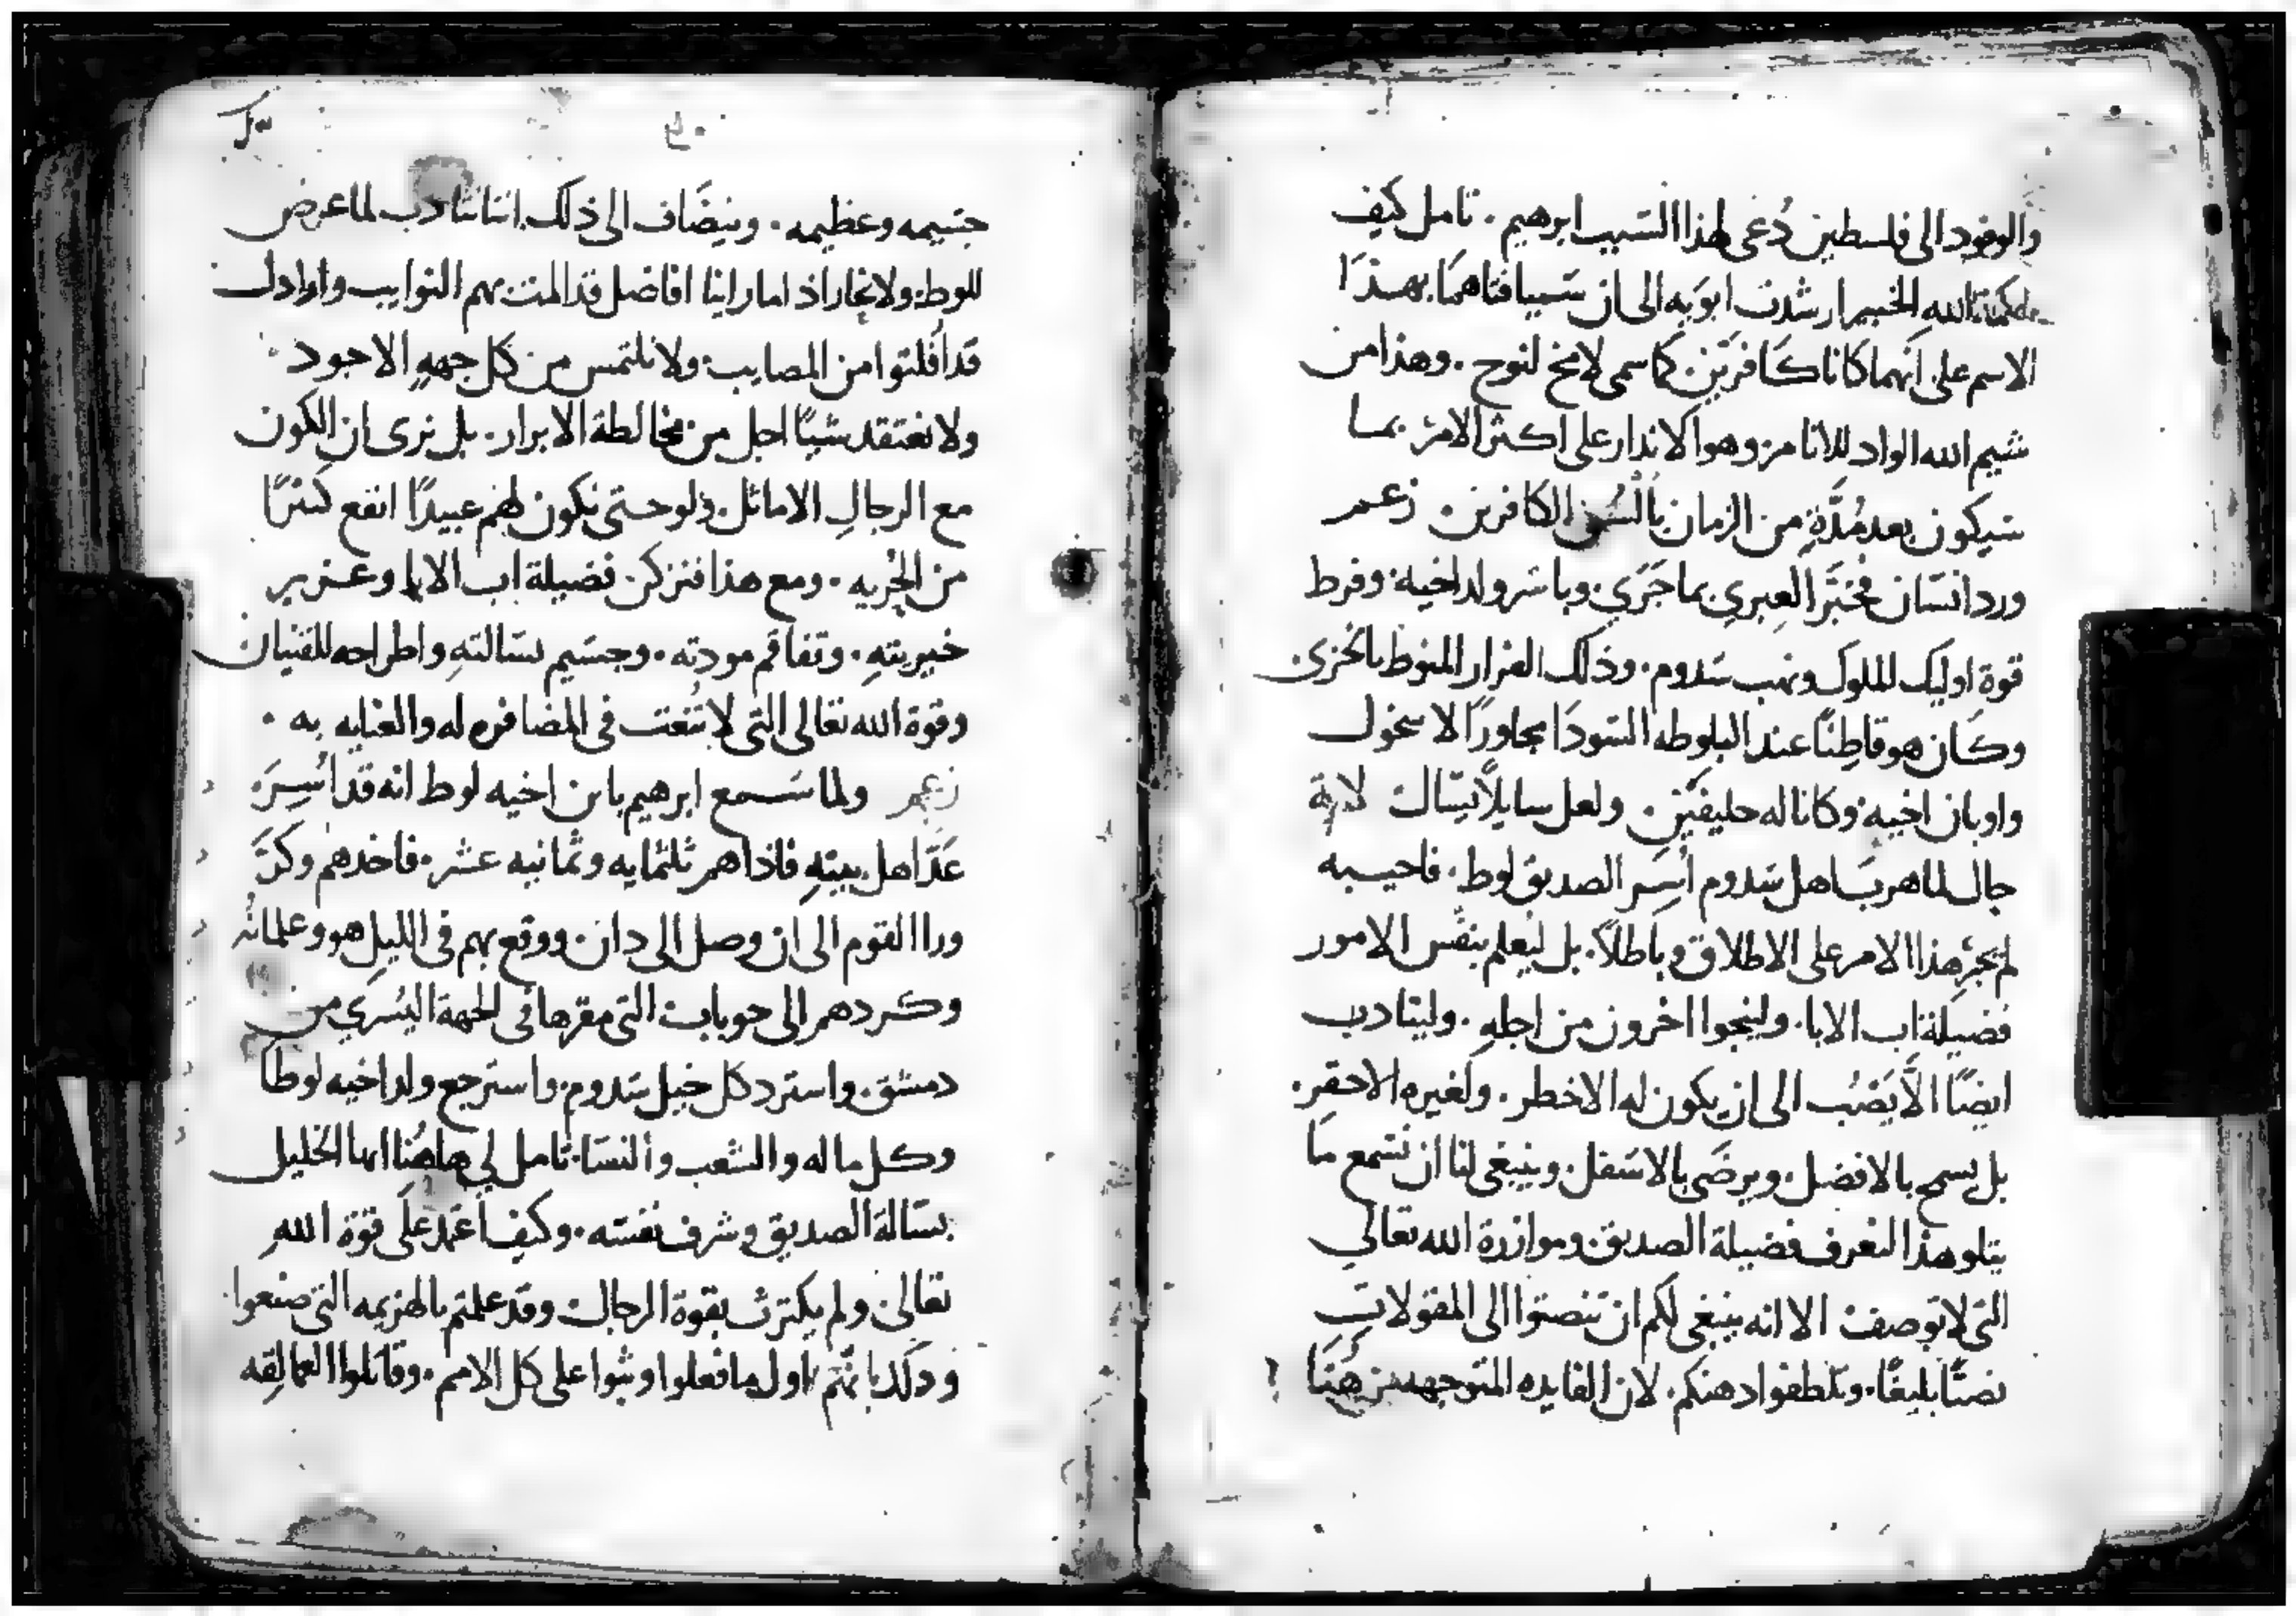 والوفود الى فلسطين دُعى لهذا السبب ابرهيم . تامل كيف
حكمة الله الخبير ارشدت ابويه الى ان سبيا فتاهما بهذا
الاسم على انهما كانا كافرين . كما سمى لامخ لنوح . وهذا من
شيم الله الواد للانام وهو الانذار على اكثر الامر بما
سيكون بعد مُدَّةٍ من الزمان بالسن الكافرين . زعم
ورد انسان فخبَّر العبري بما جَرَي . وباسر ولد اخيه . وفرط
قوة اوليك الملوك ونهب سدوم . وذلك الفرار المنوط بالخزى
وكان هو قاطنًا عند البلوطه السودا مجاورًا لاسخول
واونان اخيه . وكانا له حليفين . ولعل سايلًا يسال لاية
حال لما هرب اهل سدوم اُسِر الصديق لوط . فاجيبه
لم يجرِ هذا الامر على الاطلاق وباطلًا . بل ليُعلم بنفس الامور
فضيلة اب الابا . ولينجوا اخرون من اجله . وليتادب
ايضًا الَّا يَصُب الى ان يكون له الاخطر . ولغيره الاحقر .
بل يسمح بالافضل . ويرضَى بالاسفل . وينبغى لنا ان نسمع ما
يتلو هذا لنعرف فضيلة الصديق وموازرة الله تعالي
التى لا توصف الا انه ينبغى لكم ان تنصتوا الى المقولات
نصتًا بليغًا . وتلطفوا دهنكم . لان الفايده المتوجهه من هَنَا
جسيمه وعظيمه . وينضاف الى ذلك اننا نتادب لما عرض
للوط . ولا نحار اذا ما راينا افاضل قد المت بهم النوايب واراذل
قد اُفلتوا من المصايب . ولا نلتمس من كل جهةٍ الاجود
ولا نعتقد شيًا اجل من مخالطة الابرار . بل نرى ان الكون
مع الرجالِ الاماثل . ولو حتى نكون لهم عبيدًا انفع كثيرًا
من الحُريه . ومع هذا فنزكن فضيلة اب الابا وغزير
خيريتهِ . وتفاقم مودته . وجسيم بسالتهِ واطراحه للقنيان
وقوة الله تعالى التى لا تُنعت فى المضافره له والعنايه به .
زعم ولما سمع ابرهيم بابن اخيه لوط انه قد اُسِرَ
عَدَّ اهل بيتهِ فاذا هم ثلثمايه وثمانيه عشر . فاخذهم وكرَّ
ورا القوم الى ان وصل الى دان . ووقع بهم فى الليل هو وغلمانه
وكردهم الى حوبات التى مقرها فى الجهة اليُسري من
دمشق . واسترد كل خيل سدوم . واسترجع ولد اخيه لوطًا
وكل ماله والشعب والنسا . تامل لي هاهُنا ايها الخليل
بسالة الصديق وشرف نفسه . وكيف اعتمد على قوة الله
تعالى ولم يكترث بقوة الرجال وقد علم بالهزيمه التى صنعوا
وذلك بانهم اول ما فعلوا وثبوا على كل الامم . وقاتلوا العمالقه